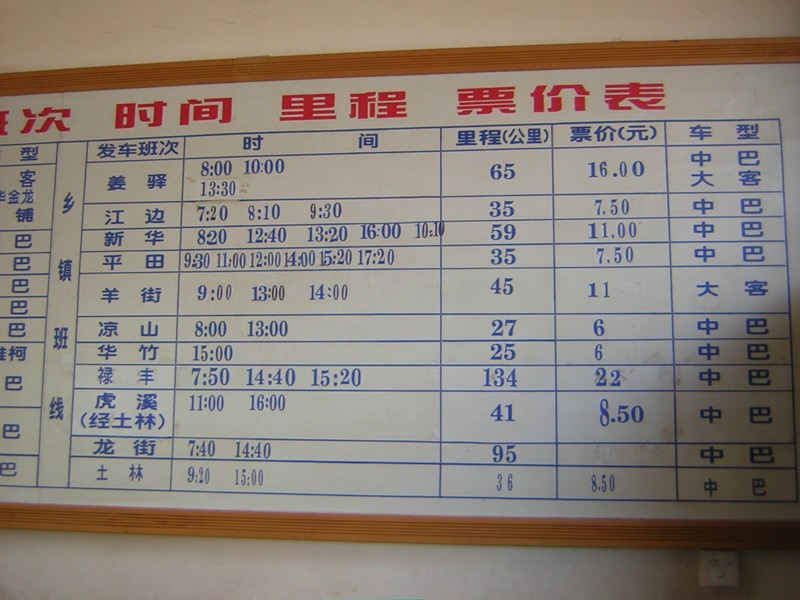 班次 时间 里程 票价表
型 乡镇班线 发车班次 时 间 里程(公里) 票价(元) 车 型
客
华金龙
铺
巴
巴
巴
巴
巴
巴
巴
巴
姜 驿 8:00 10:00 13:30 65 16.00 中 巴 大 客
江 边 7:20 8:10 9:30 35 7.50 中 巴
新 华 8:20 12:40 13:20 16:00 10:10 59 11.00 中 巴
平 田 9:30 11:00 12:00 14:00 15:20 17:20 35 7.50 中 巴
羊 街 9:00 13:00 14:00 45 11 大 客
凉 山 8:00 13:00 27 6 中 巴
华 竹 15:00 25 6 中 巴
禄 丰 7:50 14:40 15:20 134 22 中 巴
虎 溪 (经土林) 11:00 16:00 41 8.50 中 巴
龙 街 7:40 14:40 95 中 巴
土 林 9:20 15:00 36 8.50 中 巴